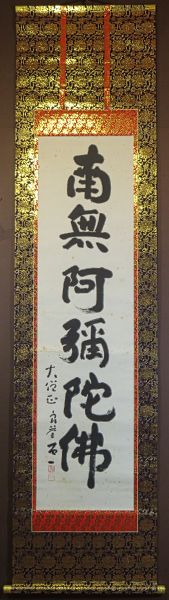 南無阿彌陀佛
大僧正